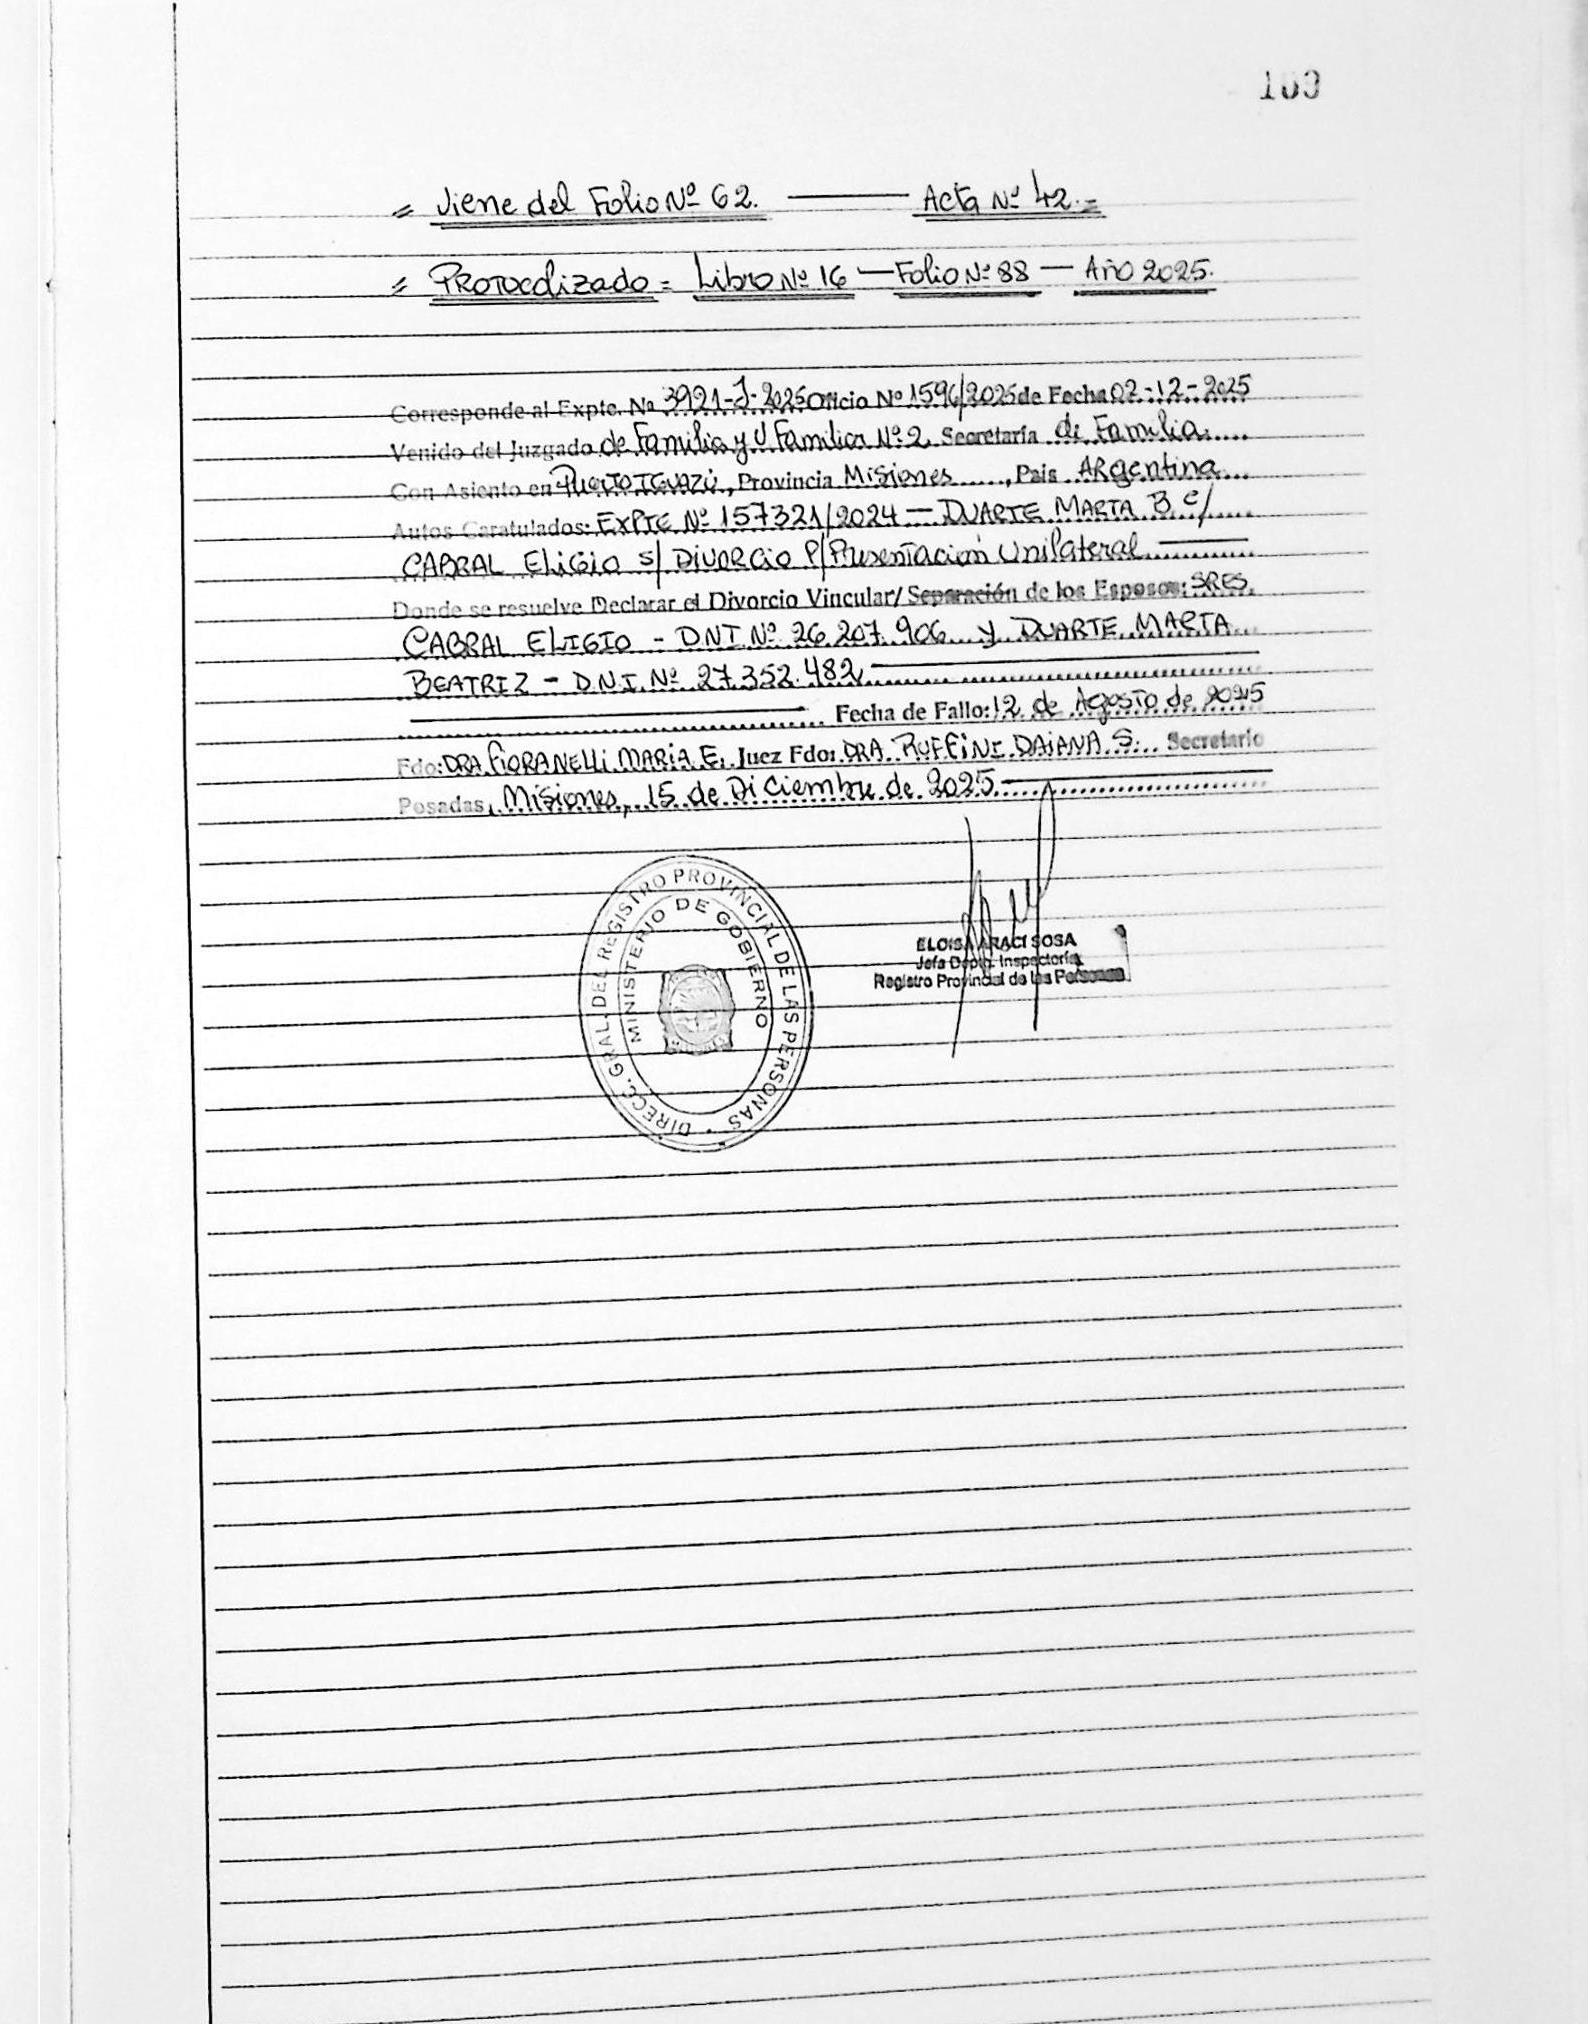 = Viene del Folio Nº 62. ——— Acta Nº 42.=
= Protocolizado = Libro Nº 16 — Folio Nº 88 — Año 2025.
Corresponde al Expte. Nº 3921-J-2025 Oficio Nº 1596/2025 de Fecha 02-12-2025
Venido del Juzgado de Familia y V. Familiar Nº 2 Secretaría de Familia.....
Con Asiento en Puerto Iguazú, Provincia Misiones ....., País Argentina...
Autos Caratulados: EXPTE Nº 157321/2024 — DUARTE MARTA B c/.....
CABRAL ELIGIO s/ DIVORCIO P/ Presentación Unilateral ...........
Donde se resuelve Declarar el Divorcio Vincular/ Separación de los Esposos: SRES.
CABRAL ELIGIO - D.N.I. Nº 26.207.906 y DUARTE MARTA
BEATRIZ - D.N.I. Nº 27.352.482
Fecha de Fallo: 12 de Agosto de 2025
Fdo: DRA. FIORANELLI MARIA E. Juez Fdo: DRA RUFFINI DAIANA S... Secretario
Posadas, Misiones, 15 de Diciembre de 2025.
DIRECC. GRAL. DEL REGISTRO PROVINCIAL DE LAS PERSONAS
MINISTERIO DE GOBIERNO
ELOISA ARACI SOSA
Jefa Dpto. Inspectoría
Registro Provincial de las Personas